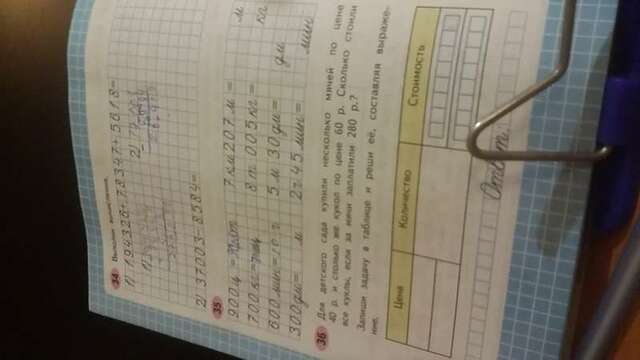 34 Выполни вычисления.
1) 194326+78347+5618=
2) 37003-8584=
35
900 ч = 7 км 207 м = м
700 кг = 8 т 005 кг = кг
600 мин = 10 ч 5 м 30 дм = дм
300 дм = м 2 ч 45 мин = мин
36 Для детского сада купили несколько мячей по цене
40 р. и столько же кукол по цене 60 р. Сколько стоили
все куклы, если за мячи заплатили 280 р.?
Запиши задачу в таблице и реши её, составляя выраже-
ние.
Цена Количество Стоимость
Ответ: